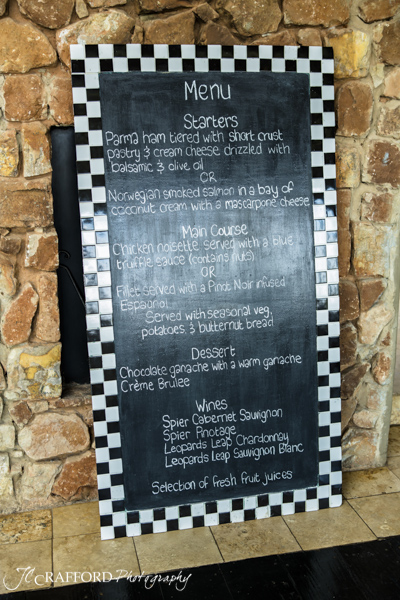 Menu
Starters
Parma ham tiered with short crust
pastry & cream cheese drizzled with
balsamic & olive oil
OR
Norwegian smoked salmon in a bay of
coconut cream with a mascarpone cheese
Main Course
Chicken noisette served with a blue
truffle sauce (contains nuts)
OR
Fillet served with a Pinot Noir infused
Espagnol
Served with seasonal veg,
potatoes & butternut bread
Dessert
Chocolate ganache with a warm ganache
Crème Brulee
Wines
Spier Cabernet Sauvignon
Spier Pinotage
Leopards Leap Chardonnay
Leopards Leap Sauvignon Blanc
Selection of fresh fruit juices
JC CRAFFORD Photography